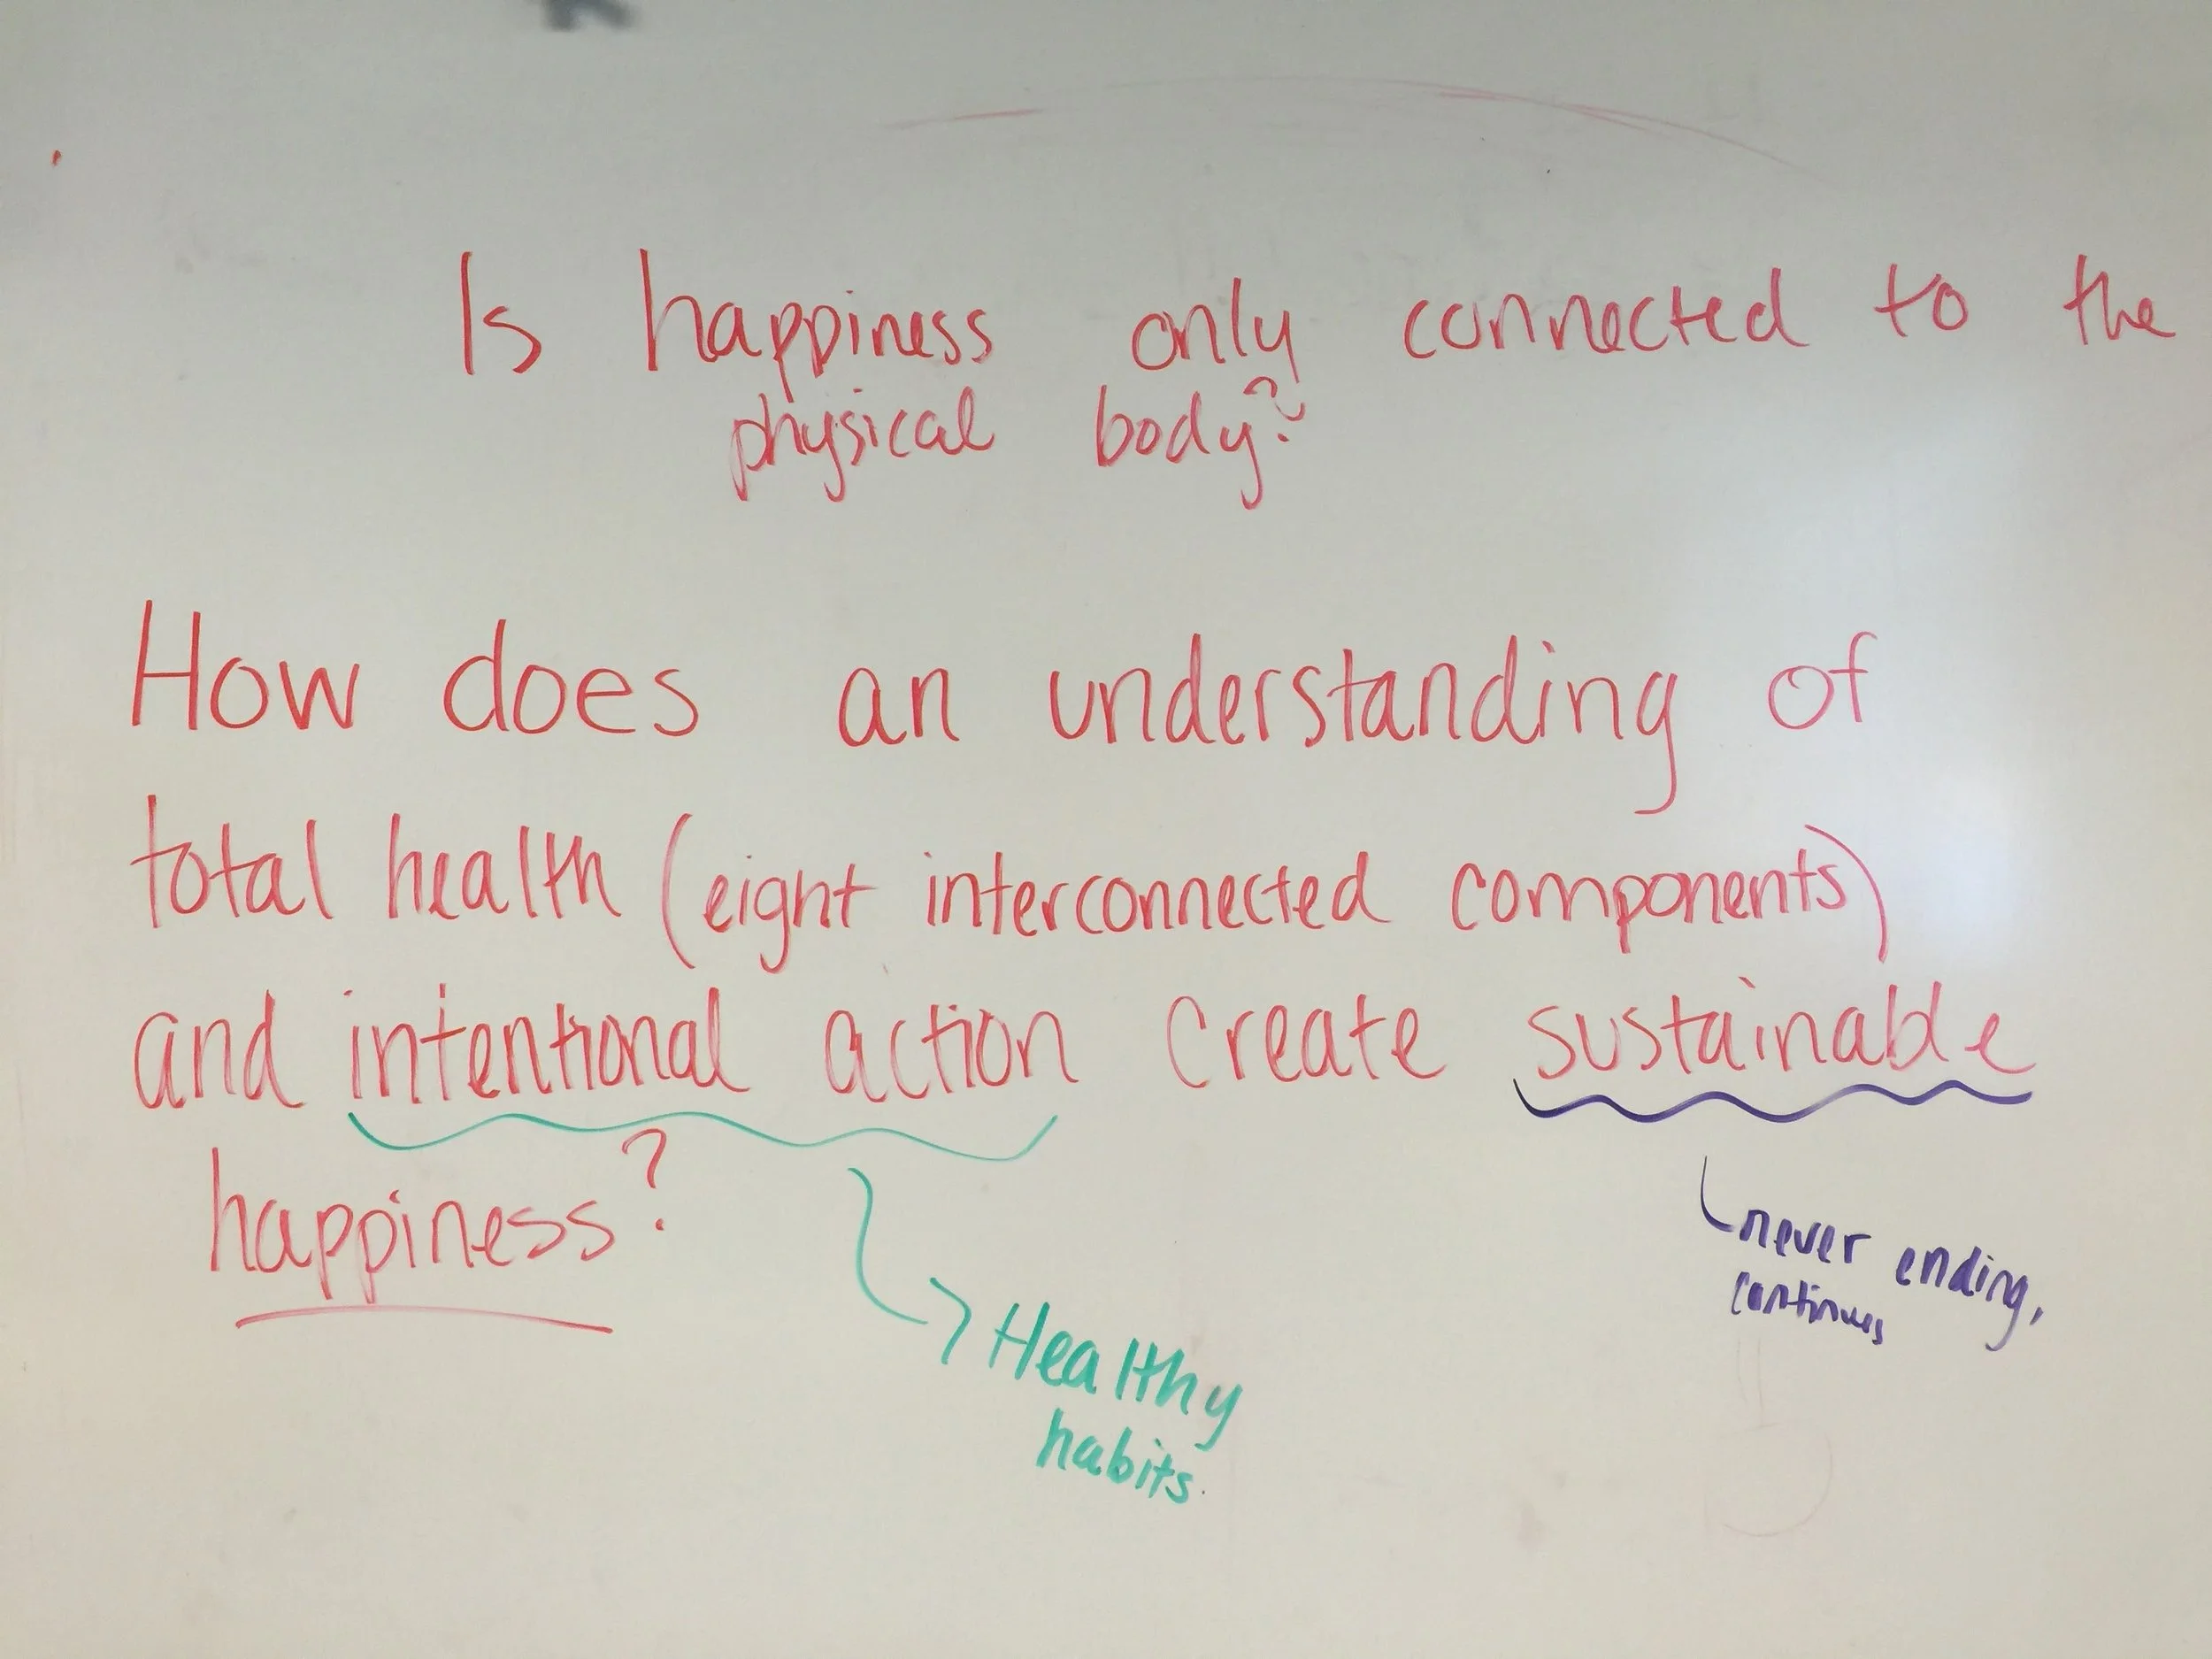 Is happiness only connected to the
physical body?
How does an understanding of
total health (eight interconnected components)
and intentional action create sustainable
happiness?
never ending,
continues
Healthy
habits.